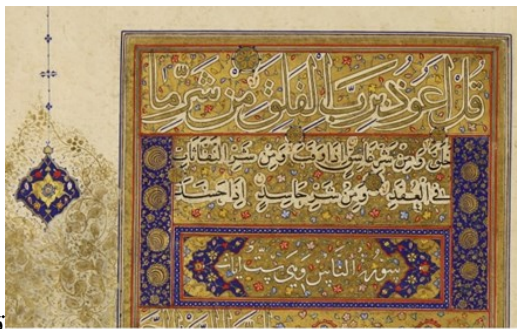 قل اعوذ برب الفلق من شر ما
خلق ومن شر غاسق اذا وقب ومن شر النفاثات
في العقد ومن شر حاسد اذا حسد
سورة الناس وهي ست آيات